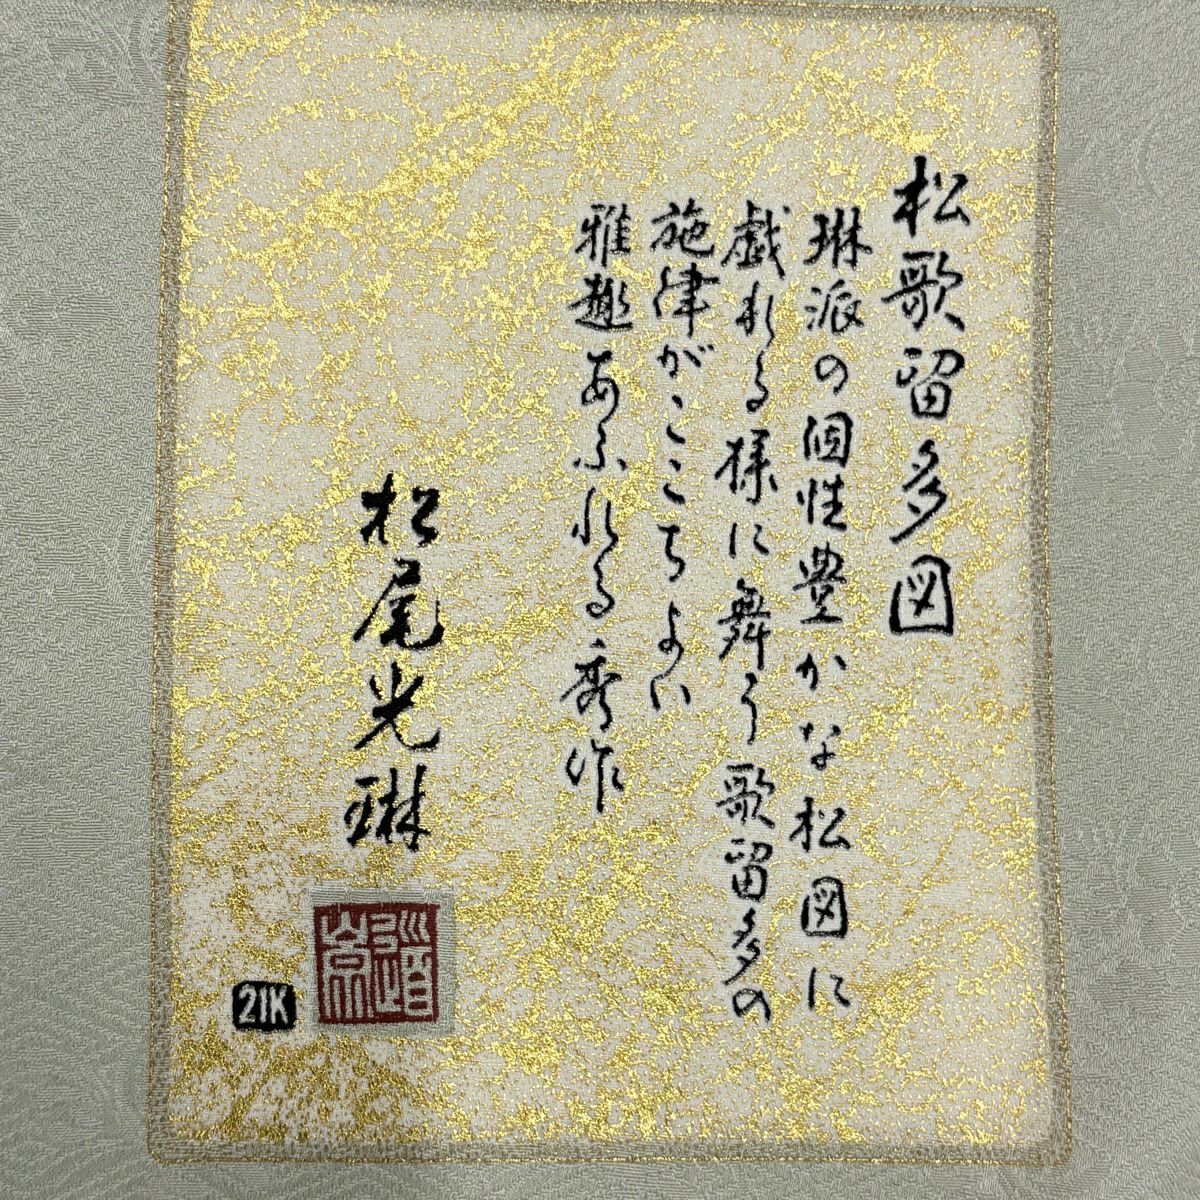 松歌留多図
琳派の個性豊かな松図に
戯れる様に舞う歌留多の
施律がここちよい
雅趣あふれる秀作
松尾光琳
21K